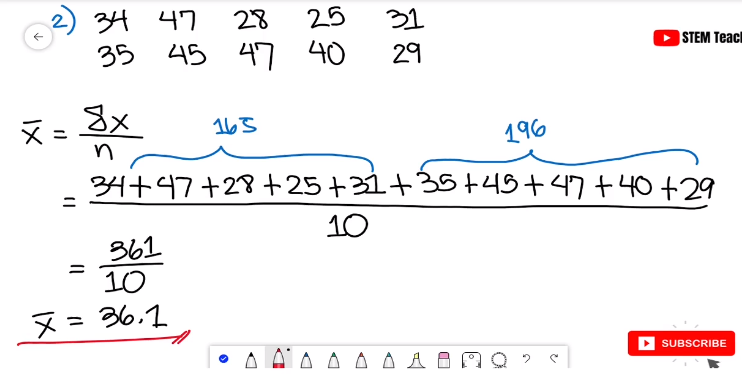 2) 34 47 28 25 31
35 45 47 40 29
STEM Teac
x̄ = Σx
n
165 196
= 34+47+28+25+31+35+45+47+40+29
10
= 361
10
x̄ = 36.1
SUBSCRIBE